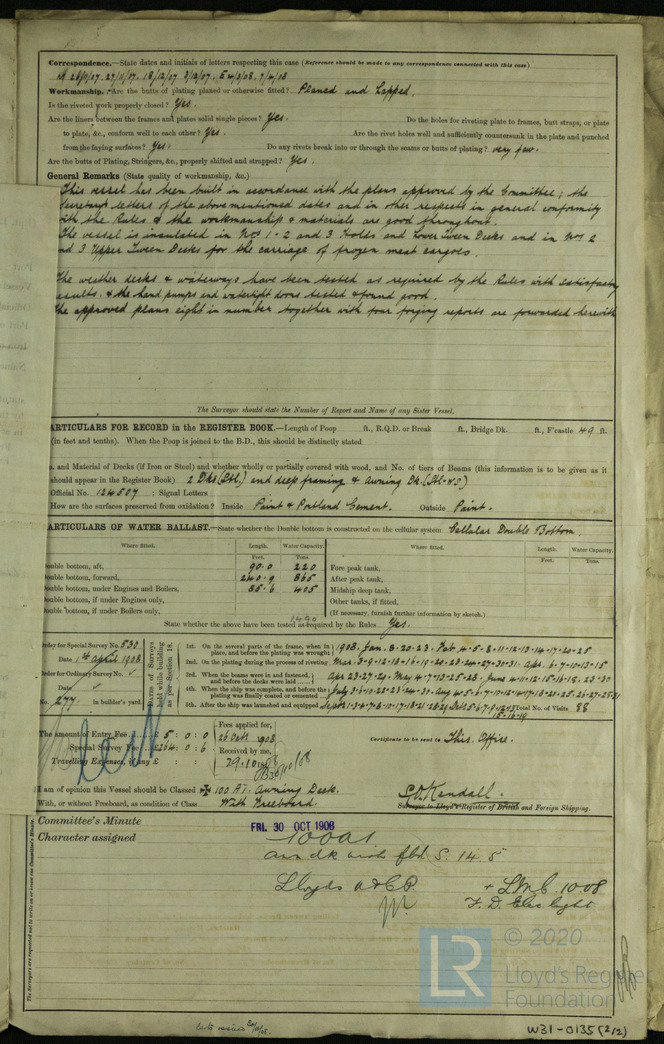 Correspondence.—State dates and initials of letters respecting this case (Reference should be made to any correspondence connected with this case)
27/11/07. 18/12/07 3/12/07. 7/4/08
Workmanship. Are the butts of plating planed or otherwise fitted? Planed and Lapped.
Is the riveted work properly closed? Yes.
Are the liners between the frames and plates solid single pieces? Yes. Do the holes for riveting plate to frames, butt straps, or plate
to plate, &c., conform well to each other? Yes. Are the rivet holes well and sufficiently countersunk in the plate and punched
from the faying surfaces? Yes. Do any rivets break into or through the seams or butts of plating? very few.
Are the butts of Plating, Stringers, &c., properly shifted and strapped? Yes.
General Remarks (State quality of workmanship, &c.)
This vessel has been built in accordance with the plans approved by the Committee; the
Secretarys letters of the above mentioned dates and in other respects in general conformity
with the Rules & the workmanship & materials are good throughout.
The vessel is insulated in Nos 1-2 and 3 Holds and Lower Tween Decks and in Nos 2
nd 3 Upper Tween Decks for the carriage of frozen meat cargoes.
The weather decks & waterways have been tested as required by the Rules with satisfactory
esults. & the hand pumps and watertight doors tested & found good.
The approved plans eight in number together with four forging reports are forwarded herewith
The Surveyor should state the Number of Report and Name of any Sister Vessel.
ARTICULARS FOR RECORD in the REGISTER BOOK.—Length of Poop ft., R.Q.D. or Break ft., Bridge Dk. ft., F'castle 49 ft.
(in feet and tenths). When the Poop is joined to the B.D., this should be distinctly stated
o. and Material of Decks (if Iron or Steel) and whether wholly or partially covered with wood, and No. of tiers of Beams (this information is to be given as it
should appear in the Register Book) 2 Dks (Stl.) and deep framing & Awning Dk.
Official No. 124507 ; Signal Letters
How are the surfaces preserved from oxidation? Inside Paint & Portland Cement. Outside Paint.
ARTICULARS OF WATER BALLAST.—State whether the Double bottom is constructed on the cellular system Cellular Double Bottom.
Where fitted. Length. Water Capacity. Where fitted. Length. Water Capacity.
Feet. Tons. Feet. Tons.
Double bottom, aft, 90.0 220 Fore peak tank,
Double bottom, forward, 240.9 865 After peak tank,
Double bottom, under Engines and Boilers, 85.6 405 Midship deep tank,
Double bottom, if under Engines only, Other tanks, if fitted,
Double bottom, if under Boilers only, (If necessary, furnish further information by sketch.)
1490
State whether the above have been tested as required by the Rules Yes.
Order for Special Survey No. 530
Date 1st April 1908
Order for Ordinary Survey No.
Date
No. 277 in builder's yard
Dates of Surveys held while building as per Section 18.
1st. On the several parts of the frame, when in place, and before the plating was wrought 1908. Jan. 8.20.23. Feb. 4.5.8.11.12.13.14.17.20.25
2nd. On the plating during the process of riveting Mar. 3.9.12.13.16.19.20.23.24.27.30.31. Apr. 6.7.10.13.15
3rd. When the beams were in and fastened, and before the decks were laid Apr. 23.27.29. May 4.7.13.25.28. June 4.11.12.15.16.19.23.31
4th. When the ship was complete, and before the plating was finally coated or cemented
5th. After the ship was launched and equipped Total No. of Visits 88
The amount of Entry Fee £5 : 0 : 0
Special Survey Fee £264 : 0 : 6
Travelling Expenses, if any £ : :
Fees applied for,
26 Oct. 1908
Received by me,
29.10.1908
30/10/08
Certificate to be sent to This Office.
I am of opinion this Vessel should be Classed ✠ 100 A1. Awning Deck.
With, or without Freeboard, as condition of Class With Freeboard.
Kendall.
Surveyor to Lloyd's Register of British and Foreign Shipping.
Committee's Minute FRI. 30 OCT 1908
Character assigned 100A1
awn dk with fbd S. 14. 5
Lloyds A&CP. + LMC 10 08
F. D. Elec light
The Surveyors are requested not to write on or below the Committee's Minute.
© 2020
Lloyd's Register
Foundation
LR
W31-0135 (2/2)